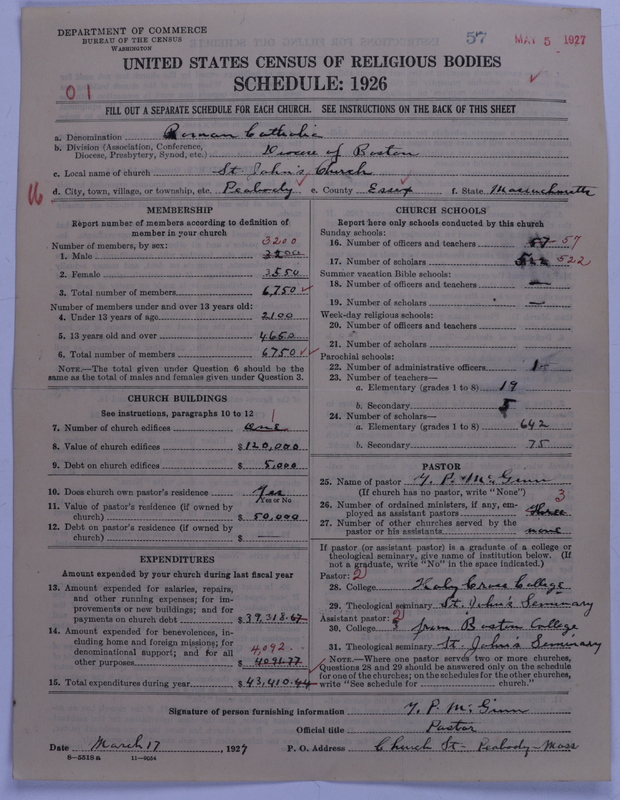 DEPARTMENT OF COMMERCE
BUREAU OF THE CENSUS
WASHINGTON
57 MAY 5 1927
UNITED STATES CENSUS OF RELIGIOUS BODIES
SCHEDULE: 1926
01
FILL OUT A SEPARATE SCHEDULE FOR EACH CHURCH. SEE INSTRUCTIONS ON THE BACK OF THIS SHEET
a. Denomination Roman Catholic
b. Division (Association, Conference,
Diocese, Presbytery, Synod, etc.) Diocese of Boston
c. Local name of church St. John's Church
d. City, town, village, or township, etc. Peabody e. County Essex f. State Massachusetts
MEMBERSHIP
Report number of members according to definition of
member in your church
Number of members, by sex:
3200
1. Male 3200
2. Female 3550
3. Total number of members 6,750
Number of members under and over 13 years old:
4. Under 13 years of age 2100
5. 13 years old and over 4650
6. Total number of members 6750
NOTE.—The total given under Question 6 should be
same as the total of males and females given under Question 3.
CHURCH BUILDINGS
See instructions, paragraphs 10 to 12
1
7. Number of church edifices one
8. Value of church edifices $120,000
9. Debt on church edifices $ 5,000
10. Does church own pastor's residence Yes
Yes or No
11. Value of pastor's residence (if owned by
church) $ 50,000
12. Debt on pastor's residence (if owned by
church) $ —
EXPENDITURES
Amount expended by your church during last fiscal year
13. Amount expended for salaries, repairs,
and other running expenses; for im-
provements or new buildings; and for
payments on church debt $39,318.67
14. Amount expended for benevolences, in-
cluding home and foreign missions; for
denominational support; and for all
4,092
other purposes $ 4091.77
15. Total expenditures during year $43,410.44
CHURCH SCHOOLS
Report here only schools conducted by this church
Sunday schools:
16. Number of officers and teachers 57 - 57
17. Number of scholars 522 522
Summer vacation Bible schools:
18. Number of officers and teachers —
19. Number of scholars —
Week-day religious schools:
20. Number of officers and teachers
21. Number of scholars
Parochial schools:
22. Number of administrative officers 1
23. Number of teachers—
a. Elementary (grades 1 to 8) 19
b. Secondary 5
24. Number of scholars—
a. Elementary (grades 1 to 8) 642
b. Secondary 75
PASTOR
25. Name of pastor T. P. McGinn
(If church has no pastor, write "None")
3
26. Number of ordained ministers, if any, em-
ployed as assistant pastors three
27. Number of other churches served by the
pastor or his assistants none
If pastor (or assistant pastor) is a graduate of a college or
theological seminary, give name of institution below. (If
not a graduate, write "No" in the space indicated.)
Pastor: 2
28. College Holy Cross College
29. Theological seminary St. John's Seminary
Assistant pastor: 2
30. College 3 from Boston College
31. Theological seminary St. John's Seminary
NOTE.—Where one pastor serves two or more churches,
Questions 28 and 29 should be answered only on the schedule
for one of the churches; on the schedules for the other churches,
write "See schedule for church."
Signature of person furnishing information T. P. McGinn
Official title Pastor
Date March 17, 1927 P. O. Address Church St- Peabody-Mass
6—5518a 11—9654